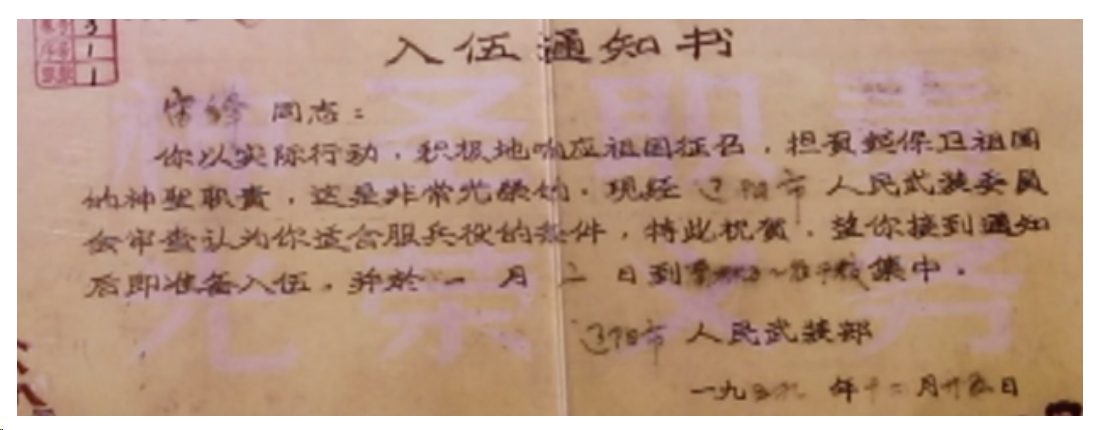 3
1
1
入伍通知书
雷锋 同志：
你以实际行动，积极地响应祖国征召，担负起保卫祖国
的神圣职责，这是非常光荣的。现经 辽阳市 人民武装委员
会审查认为你适合服兵役的条件，特此祝贺。望你接到通知
后即准备入伍，并於 一 月 二 日到 集中。
辽阳市 人民武装部
一九五九 年十二月廿五日
神圣职责
光荣义务